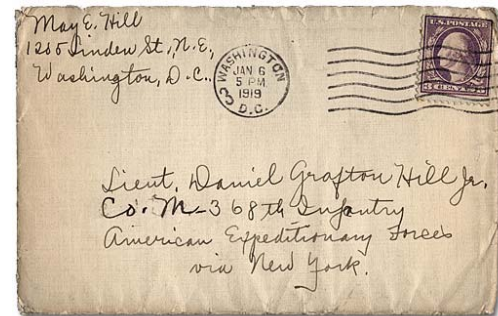 May E. Hill
1205 Linden St., N.E.,
Washington, D.C.,
WASHINGTON
JAN 6
5 PM
1919
D.C.
U.S. POSTAGE
3 CENTS 3
Lieut. Daniel Grafton Hill Jr.
Co. M-368th Infantry
American Expeditionary Forces
via New York.